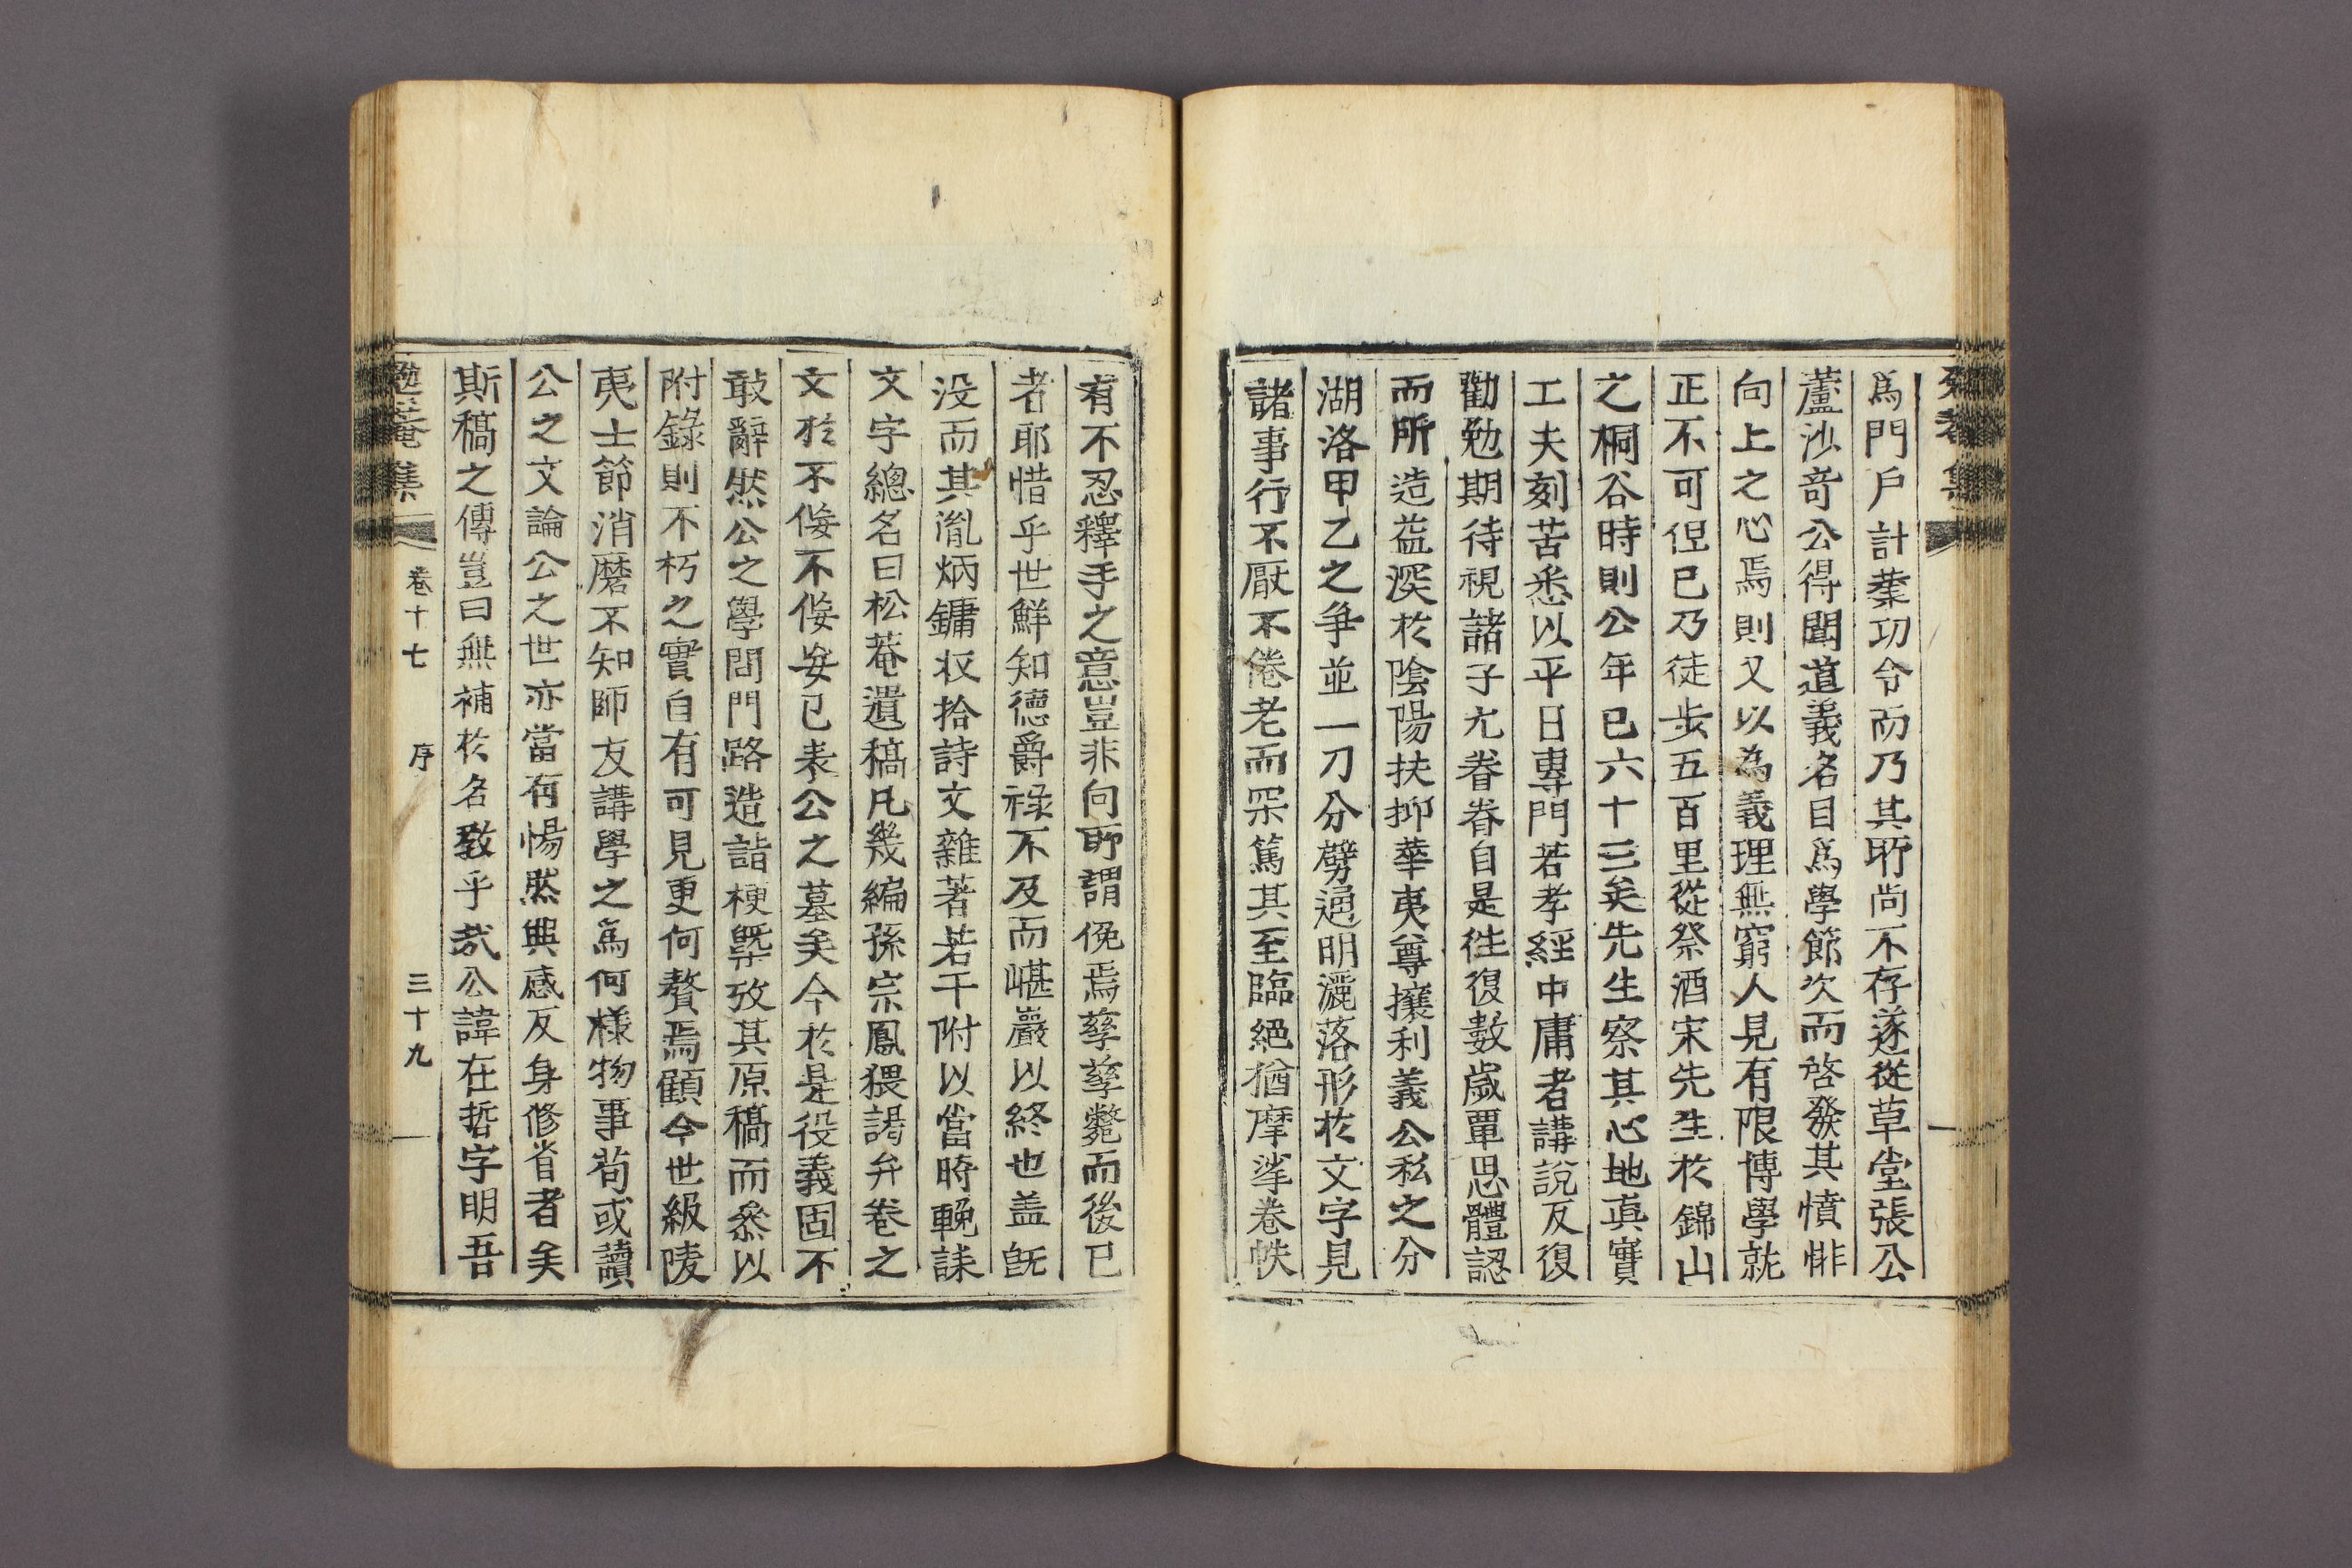 爲門戶計業功令而乃其所尚不存遂從草堂張公
蘆沙奇公得聞道義名目爲學節次而啓發其憤悱
向上之心焉則又以為義理無窮人見有限博學就
正不可但已乃徒步五百里從祭酒宋先生於錦山
之桐谷時則公年已六十三矣先生察其心地眞實
工夫刻苦悉以平日專門若孝經中庸者講說反復
勸勉期待視諸子尤眷眷自是徃復數歲覃思體認
而所造益深於陰陽扶抑華夷尊攘利義公私之分
湖洛甲乙之爭並一刀分劈通明灑落形於文字見
諸事行不厭不倦老而罙篤其至臨絕猶摩挲卷帙
有不忍釋手之意豈非向所謂俛焉孳孳斃而後已
者耶惜乎世鮮知德爵祿不及而嵁巖以終也盖旣
没而其胤炳鏞收拾詩文雜著若干附以當時輓誄
文字總名曰松菴遺稿凡幾編孫宗鳳猥謁弁卷之
文於不侫不侫妄已表公之墓矣今於是役義固不
敢辭然公之學問門路造詣梗槩攷其原稿而叅以
附錄則不朽之實自有可見更何贅焉顧今世級陵
夷士節消磨不知師友講學之爲何樣物事苟或讀
公之文論公之世亦當有惕然興感反身修省者矣
斯稿之傳豈曰無補於名敎乎哉公諱在哲字明吾
勉菴集 卷十七 序 三十九